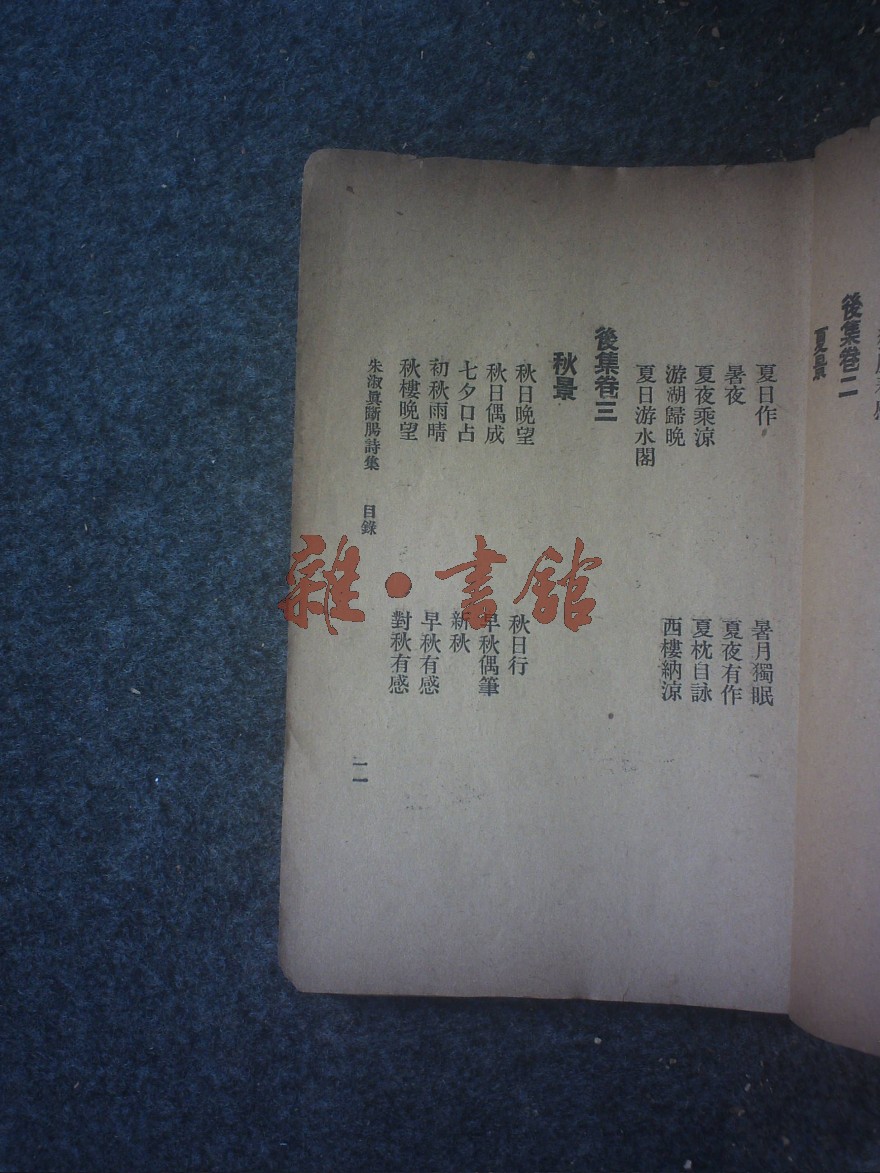 後集卷二
夏景
夏日作 暑月獨眠
暑夜 夏夜有作
夏夜乘涼 夏枕自詠
游湖歸晚 西樓納涼
夏日游水閣
後集卷三
秋景
秋日晚望 秋日行
秋日偶成 早秋偶筆
七夕口占 新秋
初秋雨晴 早秋有感
秋樓晚望 對秋有感
朱淑眞斷腸詩集 目錄 一一
雜·書館